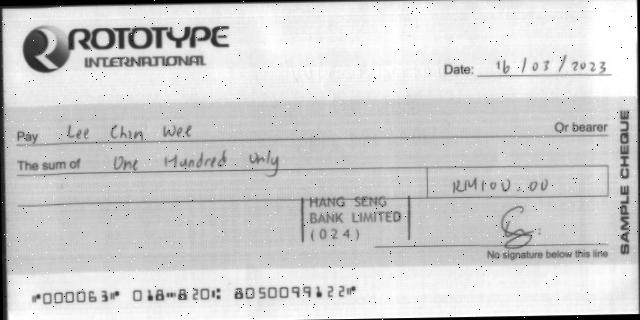 ROTOTYPE
INTERNATIONAL
Date: 16/03/2023
Pay Lee Chin Wee Or bearer
The sum of One Hundred Only
RM100.00
HANG SENG
BANK LIMITED
(024)
No signature below this line
SAMPLE CHEQUE
⑈000063⑈ 018⑉820⑆ 8050099122⑈